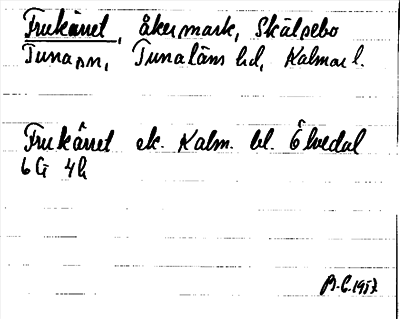 Frukärret, åkermark, Skälsebo
Tuna sn, Tunaläns hd, Kalmar l.
Frukärret ek. Kalm. bl. Älvedal
6G 4h
B.G. 1957